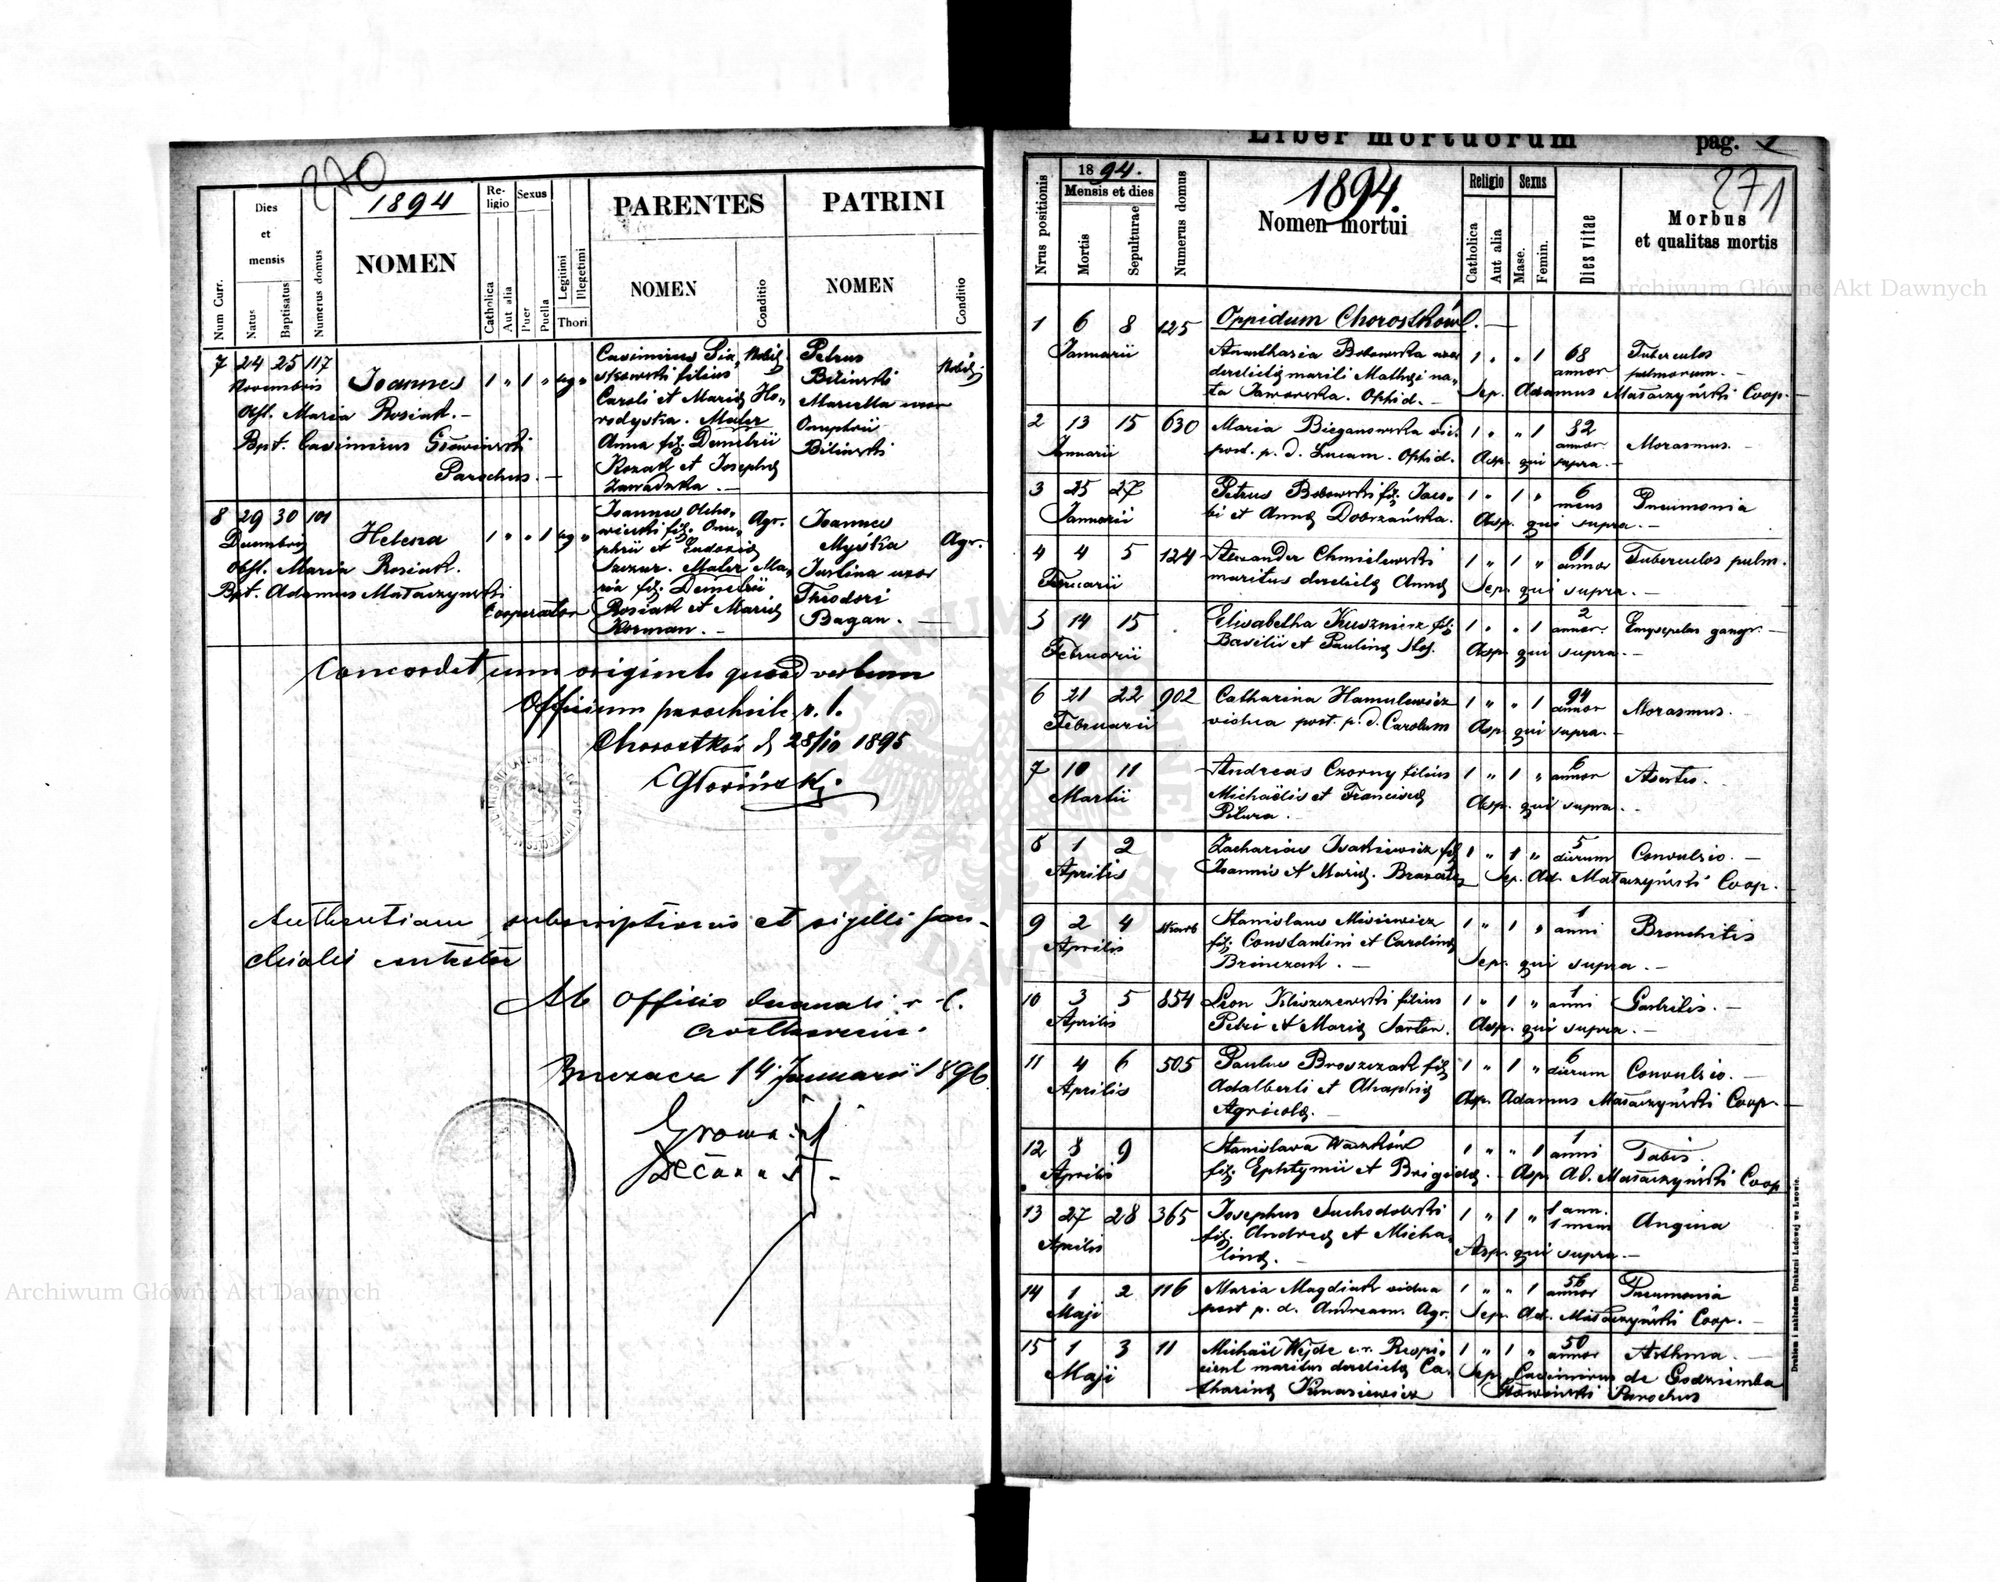 270
1894
Num Curr.
Dies et mensis
Natus
Baptisatus
Numerus domus
NOMEN
Religio
Catholica
Aut alia
Sexus
Puer
Puella
Legitimi
Illegetimi
Thori
PARENTES
NOMEN
Conditio
PATRINI
NOMEN
Conditio
7 24 25 117
Novembris
Joannes
1 " 1 " leg "
Obst. Maria Rosiak. -
Bpt. Casimirus Głowiński
Parochus. -
Casimirus
filius
Caroli et Mariae Ho-
rodyska. Mater
Anna fil. Demetrii
Kozak et Josephae
Zawadzka. -
Nobil.
Petrus
Biliński
Marcella uxor
Onuphrii
Biliński
Nobil.
8 29 30 101
Decembris
Helena
1 " " 1 leg "
Obst. Maria Rosiak.
Bpt. Adamus Mataczyński
Cooperator
Joannes Olcho-
wiecki fil. Onu-
phrii et Eudoxiae
Mater Ma-
ria fil. Demetrii
Rosiak et Mariae
Korman. -
Agr.
Joannes
Myśka
Justina uxor
Theodori
Bagan. -
Agr.
Concordat cum originali quoad verbum
Officium parochiale r. l.
Chorostków d. 28/10 1895
CGłowiński
subscriptionis et sigilli
Ab officio decanali r. l.
14 Januarii 1896
Liber mortuorum
pag. 1
271
Nrus positionis
1894.
Mensis et dies
Mortis
Sepulturae
Numerus domus
1894.
Nomen mortui
Religio
Catholica
Aut alia
Sexus
Masc.
Femin.
Dies vitae
Morbus
et qualitas mortis
Oppidum Chorostków. -
1 6 8 125
Januarii
Anasthasia Bobowska uxor
derelicta mariti Mathaei na-
ta Jaworska. Opid. -
1 " " 1 68 annor
Tuberculos
pulmorum. -
Sep. Adamus Mataczyński Coop. -
2 13 15 630
Januarii
Maria Bieganowska vid.
post. p. d. Lucam. Opid.
1 " " 1 82 annor
Morasmus. -
Asp. qui supra. -
3 25 27
Januarii
Petrus Bobowski fil. Jaco-
bi et Annae Dobrzańska.
1 " 1 " 6 mens
Pneumonia
Asp. qui supra. -
4 4 5 124
Februarii
Alexander Chmielewski
maritus derelictae Annae
1 " 1 " 61 annor
Tuberculos pulm.
Sep. qui supra. -
5 14 15
Februarii
Elisabetha Kuszmirz fil.
Basilii et Paulinae
1 " " 1 2 annor.
gangr. -
Asp. qui supra. -
6 21 22 902
Februarii
Catharina Hamulewicz
vidua post. p. d. Carolum
1 " " 1 94 annor
Morasmus.
Asp. qui supra. -
7 10 11
Martii
Andreas Czorny filius
Michaëlis et Franciscae
Pitura. -
1 " 1 " 6 annor
Asp. qui supra. -
8 1 2
Aprilis
Zacharias Isakiewicz fil
Joannis et Mariae.
1 " 1 " 5 dierum
Convulsio. -
Sep. Ad. Mataczyński Coop. -
9 2 4
Aprilis
Stanislaus Misiewicz
fil. Constantini et Carolinae
1 " 1 " 1 anni
Bronchitis
Sep. qui supra. -
10 3 5 854
Aprilis
Leon Kliszczewski filius
Petri et Mariae
1 " 1 " 1 anni
Gastritis. -
Asp. qui supra. -
11 4 6 505
Aprilis
Paulus Broszczak fil
Adalberti et Ahaphiae
Agricolae. -
1 " 1 " 6 dierum
Convulsio. -
Asp. Adamus Mataczyński Coop. -
12 8 9
Aprilis
Stanislava Waszków
fil. Ephtymii et Brigidae. -
1 " " 1 1 anni
Tabis.
Asp. Ad. Mataczyński Coop
13 27 28 365
Aprilis
Josephus Suchodolski
fil. Andreae et Micha-
linae. -
1 " 1 " 1 ann. 1 mens
Angina
Asp. qui supra. -
14 1 2 116
Maji
Maria Magdiak vidua
post p. d. Andream. Agr.
1 " " 1 56 annor
Pneumonia
Sep. Ad. Mataczyński Coop. -
15 1 3 11
Maji
Michaël Wejde
maritus derelictae Ca-
tharinae
1 " 1 " 50 annor
Asthma. -
Sep. Casimirus de Godziemba
Głowiński Parochus
Drukiem i nakładem Drukarni Ludowej we Lwowie.
Archiwum Główne Akt Dawnych
Archiwum Główne Akt Dawnych